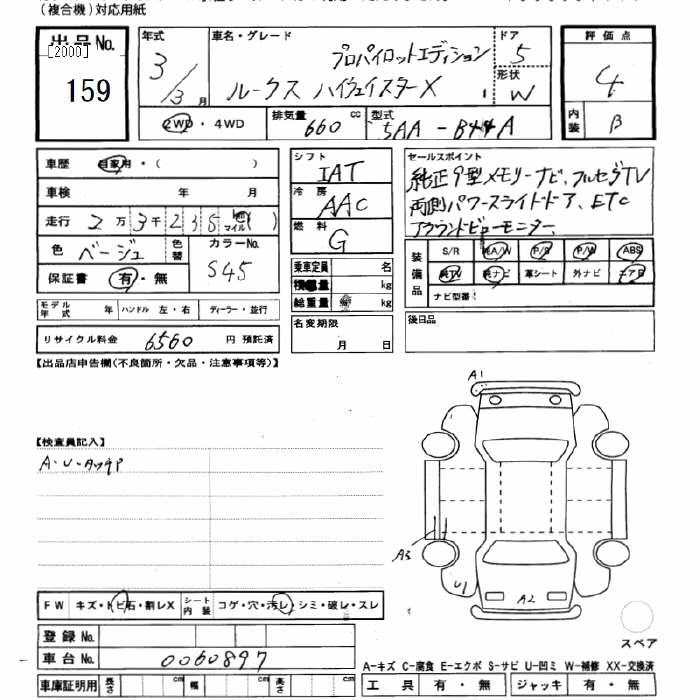 (複合機)対応用紙
出品No.
[2000]
159
年式
3/3月
車名・グレード
プロパイロットエディション
ルークス ハイウェイスターX
ドア
5
形状
W
評価点
4
内装
B
2WD・4WD
排気量
660 cc
型式
5AA-B44A
車歴 自家用・( )
車検 年 月
走行 2万3千235 km マイル( )
色 ベージュ
色替
カラーNo.
S45
保証書 有・無
モデル年式 年 ハンドル 左・右 ディーラー・並行
リサイクル料金 6560 円 預託済
シフト
IAT
冷房
AAC
燃料
G
乗車定員 名
積載量 kg
総重量 kg
名変期限
月 日
セールスポイント
純正9型メモリーナビ、フルセグTV
両側パワースライドドア、ETC
アラウンドビューモニター、
装備品
S/R 純A/W P/S P/W ABS
純TV 純ナビ 革シート 外ナビ エアB
ナビ型番:
後日品
【出品店申告欄(不良箇所・欠品・注意事項等)】
【検査員記入】
A・U・アッチP
A1
A3
U1
A2
スペア
FW キズ・トビ石・割レX
シート内装 コゲ・穴・汚レ・シミ・破レ・スレ
登録No.
車台No. 0060897
車庫証明用 長さ cm 幅 cm 高さ cm
A-キズ C-腐食 E-エクボ S-サビ U-凹ミ W-補修 XX-交換済
工具 有・無 ジャッキ 有・無